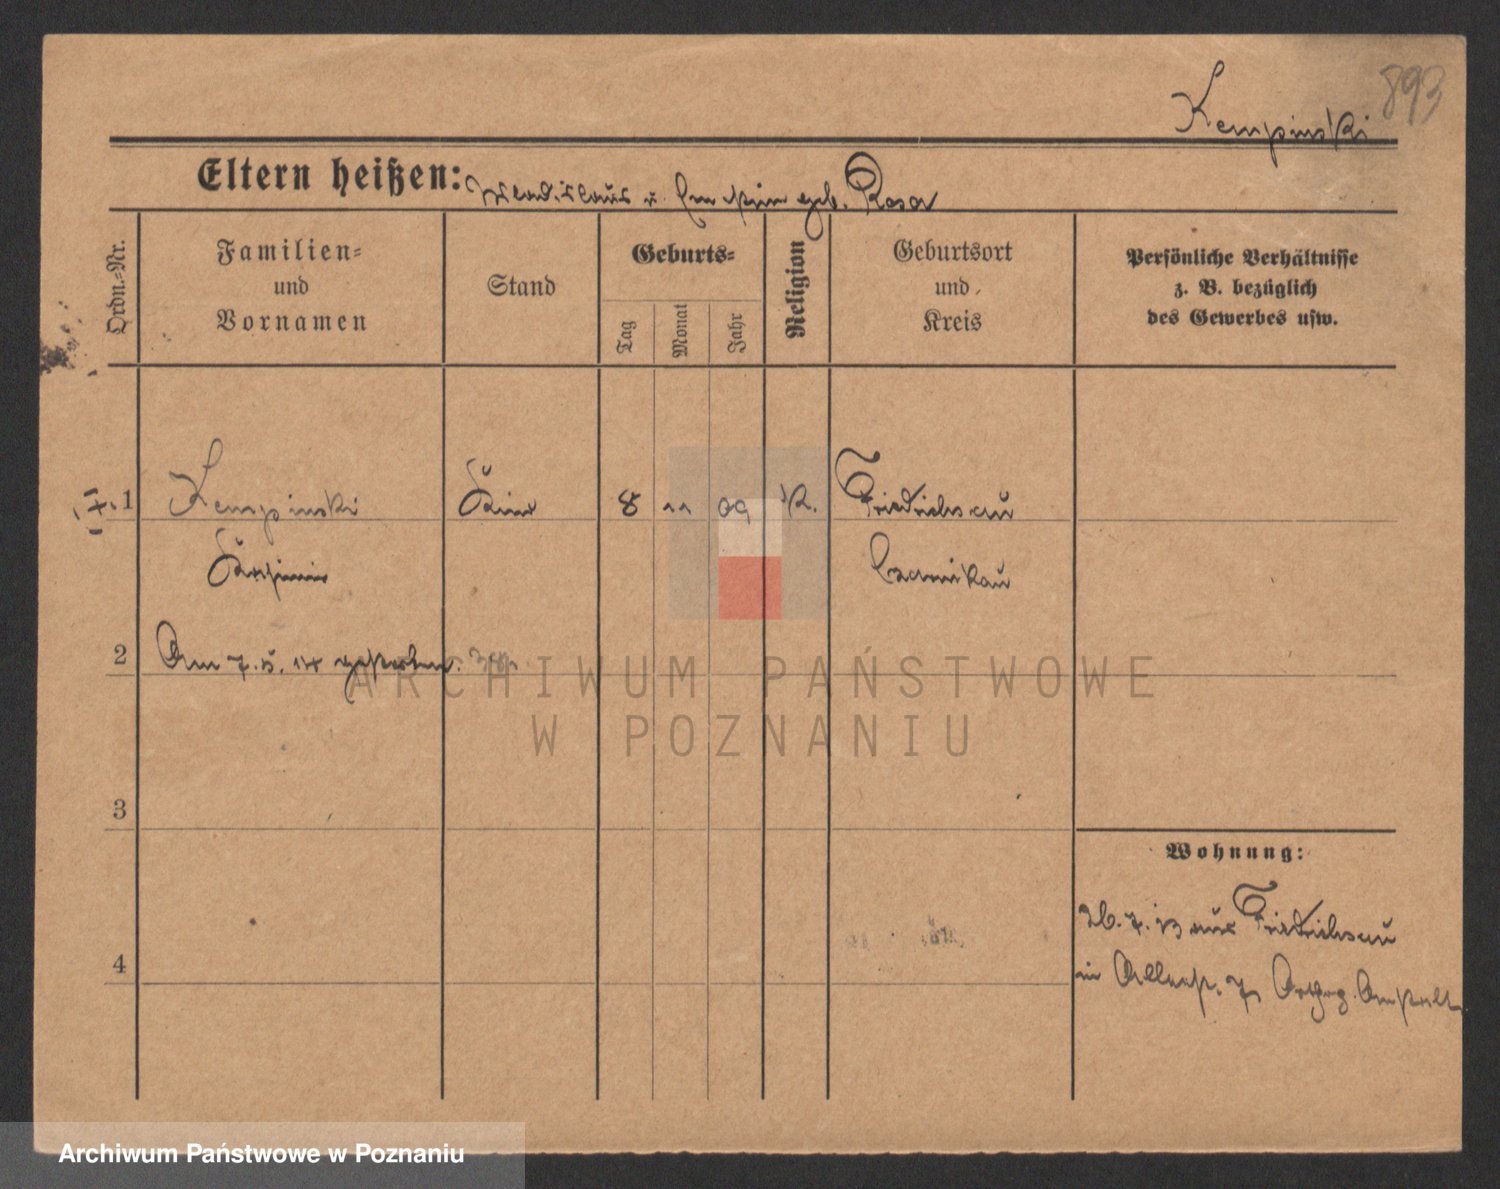 893
Kempinski
Eltern heißen: Wladislaus u. geb. Rosa
Ordn.-Nr.
Familien-
und
Vornamen
Stand
Geburts-
Tag
Monat
Jahr
Religion
Geburtsort
und
Kreis
Persönliche Verhältnisse
z. B. bezüglich
des Gewerbes usw.
1 Kempinski Kind 8 11 09 K. Friedrichsau
Kasimir Czarnikau
2 Am 7. 5. 14 gestorben.
3
4
Wohnung:
26. 7. 13 aus Friedrichsau
in Anstalt
ARCHIWUM PAŃSTWOWE
W POZNANIU
Archiwum Państwowe w Poznaniu